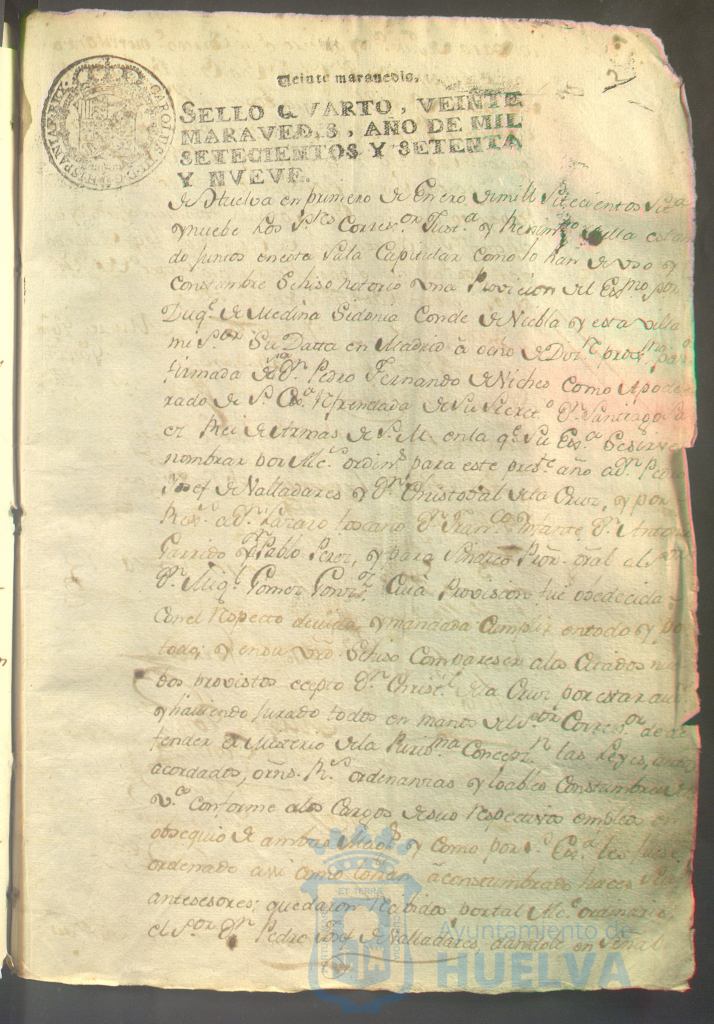 Veinte maravedis.
SELLO QVARTO, VEINTE
MARAVEDIS, AÑO DE MIL
SETECIENTOS Y SETENTA
Y NVEVE.
CAROLUS III D G HISPANIAR REX
de Huelva en primero de Enero de mill Setecientos Set.ta
y nuebe los S.res Correx.or Just.a y Reximto villa estan
do juntos en esta Sala Capitular como lo han de uso y
Constumbre Sehiso notorio una Provicion del Exmo
Duq.e de Medina Sidonia Conde de Niebla y esta villa
mi S.or Su Datta en Madrid â ocho de Diz.re
firmada de Dn. Pedro Fernando de Niches como Apode
rado de S. Ex.a Refrendada de Su Secret.o Dn. Santiago
Rei de Armas de S. M. en la q.e Su Ex.a Sesirve
nombrar por Alc.s ordin.s para este pres.te año a Dn. Pedro
Josef de Valladares y Dn. Christobal de la Cruz, y por
Rex.s a Dn. Lazaro toscano Dn. Fran.co Dn. Antonio
Garrido Dn. Pablo Perez, y para Sindico Pror. gral al S.or
Dn. Mig.l Gomez Cuia Provision fue obedecida
Con el respecto devido y mandada Cumplir en todo y po
todo; y en su Sehiso Compareser a los Citados nu
dos provistos ecepto Dn. Christ.l de la Cruz por estar au
y haviendo Jurado todos en manos del S.or Correx.or de de
fender el Misterio de la Puris.ma Concepz.n las Leyes, autos
acordados, orns. R.s ordenanzas y loables Constumbres
V.a conforme a los Cargos de sus respectivos empleos en
obsequio de ambas Mag.s y Como por S. Ex.a les fuese
ordenado assi como tenian âconstumbrado hacer sus
antesesores: quedaron resibidos por tal Alc.e ordinario
el S.or Dn. Pedro Josef de Valladares dandole en señal
ET TERRAE
Ayuntamiento de
HUELVA